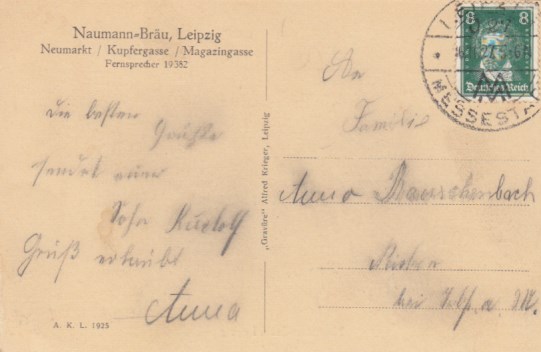 Naumann-Bräu, Leipzig
Neumarkt / Kupfergasse / Magazingasse
Fernsprecher 19382
Die besten
Grüße
sendet eure
Sohn Rudolf
Gruß erlaubt
Anna
A. K. L. 1925
„Gravüre" Alfred Krieger, Leipzig
8 8
Deutsches Reich
MESSESTA
An
Familie
Anna Rauschenbach
bei